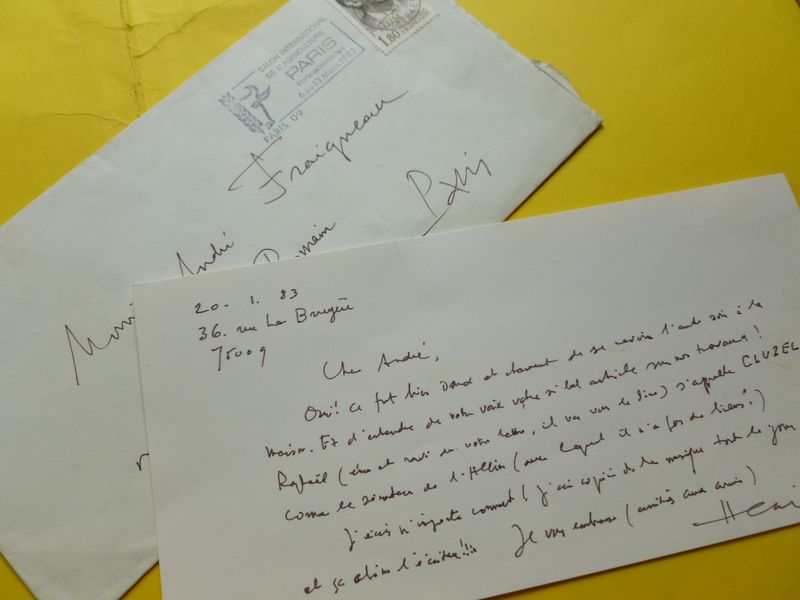 SALON INTERNATIONAL
DE L'AGRICULTURE
PARIS
Porte de Versailles
6 au 13 Mars 1983
PARIS 09
1,80
Fraigneau
André
Romain
Paris
20. 1. 83
36. rue La Bruyère
75009
Cher André,
Oui! ce fut bien doux et charmant de se revoir l'autre soir à la
maison. Et d'entendre de votre voix votre si bel article sur nos travaux!
Raphaël (ému et ravi de votre lettre, il va vous le dire) s'appelle CLUZEL
comme le sénateur de l'Allier (avec lequel il n'a pas de liens!)
J'écris n'importe comment! J'ai copié de la musique tout le jour
et ça abîme l'écriture!!! Je vous embrasse (amitiés aux amis)
Henri